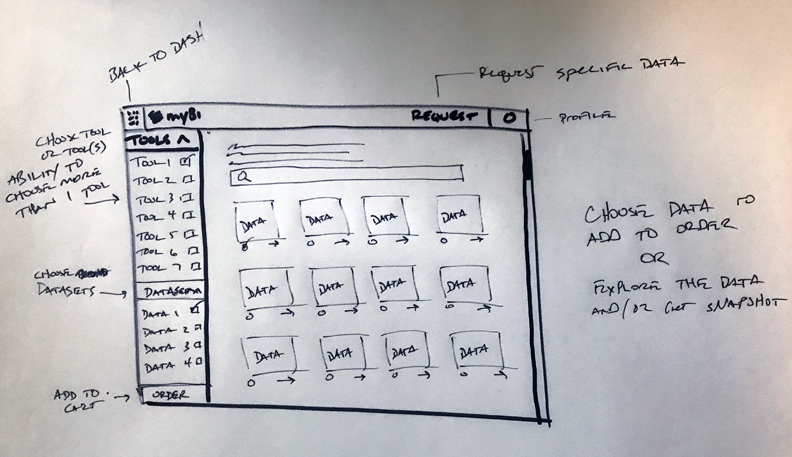 BACK TO DASH
REQUEST SPECIFIC DATA
myBI
REQUEST
PROFILE
TOOLS
CHOOSE TOOL
OR TOOL(S)
ABILITY TO
CHOOSE MORE
THAN 1 TOOL
TOOL 1
TOOL 2
TOOL 3
TOOL 4
TOOL 5
TOOL 6
TOOL 7
CHOOSE
DATASETS
DATASETS
DATA 1
DATA 2
DATA 3
DATA 4
ADD TO
CART
ORDER
DATA DATA DATA DATA
DATA DATA DATA DATA
DATA DATA DATA DATA
CHOOSE DATA TO
ADD TO ORDER
OR
EXPLORE THE DATA
AND/OR GET SNAPSHOT